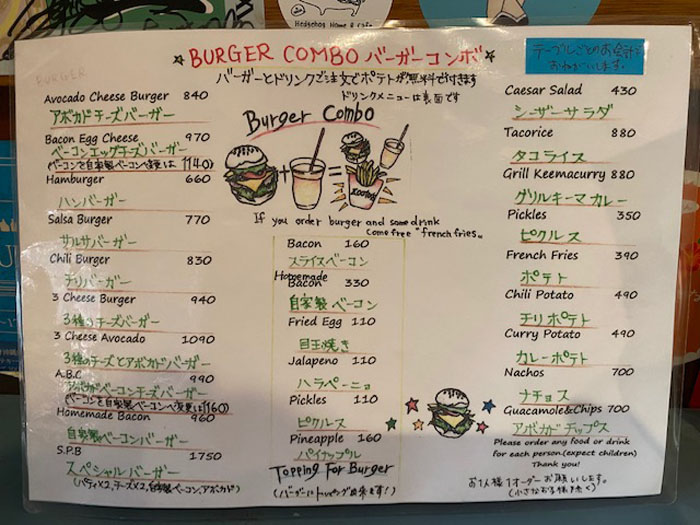 Hedgehog Home & Cafe
BURGER
★BURGER COMBO バーガーコンボ★
バーガーとドリンクご注文でポテトが無料で付きます
ドリンクメニューは裏面です
テーブルごとのお会計を
おねがいします。
Avocado Cheese Burger 840
アボカドチーズバーガー
Bacon Egg Cheese 970
ベーコンエッグチーズバーガー
(ベーコンを自家製ベーコンへ変更は 1140)
Hamburger 660
ハンバーガー
Salsa Burger 770
サルサバーガー
Chili Burger 830
チリバーガー
3 Cheese Burger 940
3種のチーズバーガー
3 Cheese Avocado 1090
3種のチーズとアボカドバーガー
A.B.C 990
アボカドベーコンチーズバーガー
(ベーコンを自家製ベーコンへ変更は1160)
Homemade Bacon 960
自家製ベーコンバーガー
S.P.B 1750
スペシャルバーガー
(パティ×2,チーズ×2,自家製ベーコン,アボカド)
Burger Combo
+ =
If you order burger and some drink
come free "french fries„
Bacon 160
スライスベーコン
Homemade
Bacon 330
自家製ベーコン
Fried Egg 110
目玉焼き
Jalapeno 110
ハラペーニョ
Pickles 110
ピクルス
Pineapple 160
パイナップル
Topping For Burger
(バーガーにトッピング出来ます!)
Caesar Salad 430
シーザーサラダ
Tacorice 880
タコライス
Grill Keemacurry 880
グリルキーマカレー
Pickles 350
ピクルス
French Fries 390
ポテト
Chili Potato 490
チリポテト
Curry Potato 490
カレーポテト
Nachos 700
ナチョス
Guacamole&Chips 700
アボカドチップス
Please order any food or drink
for each person.(expect children)
Thank you!
お1人様1オーダーお願いします。
(小さなお子様除く)